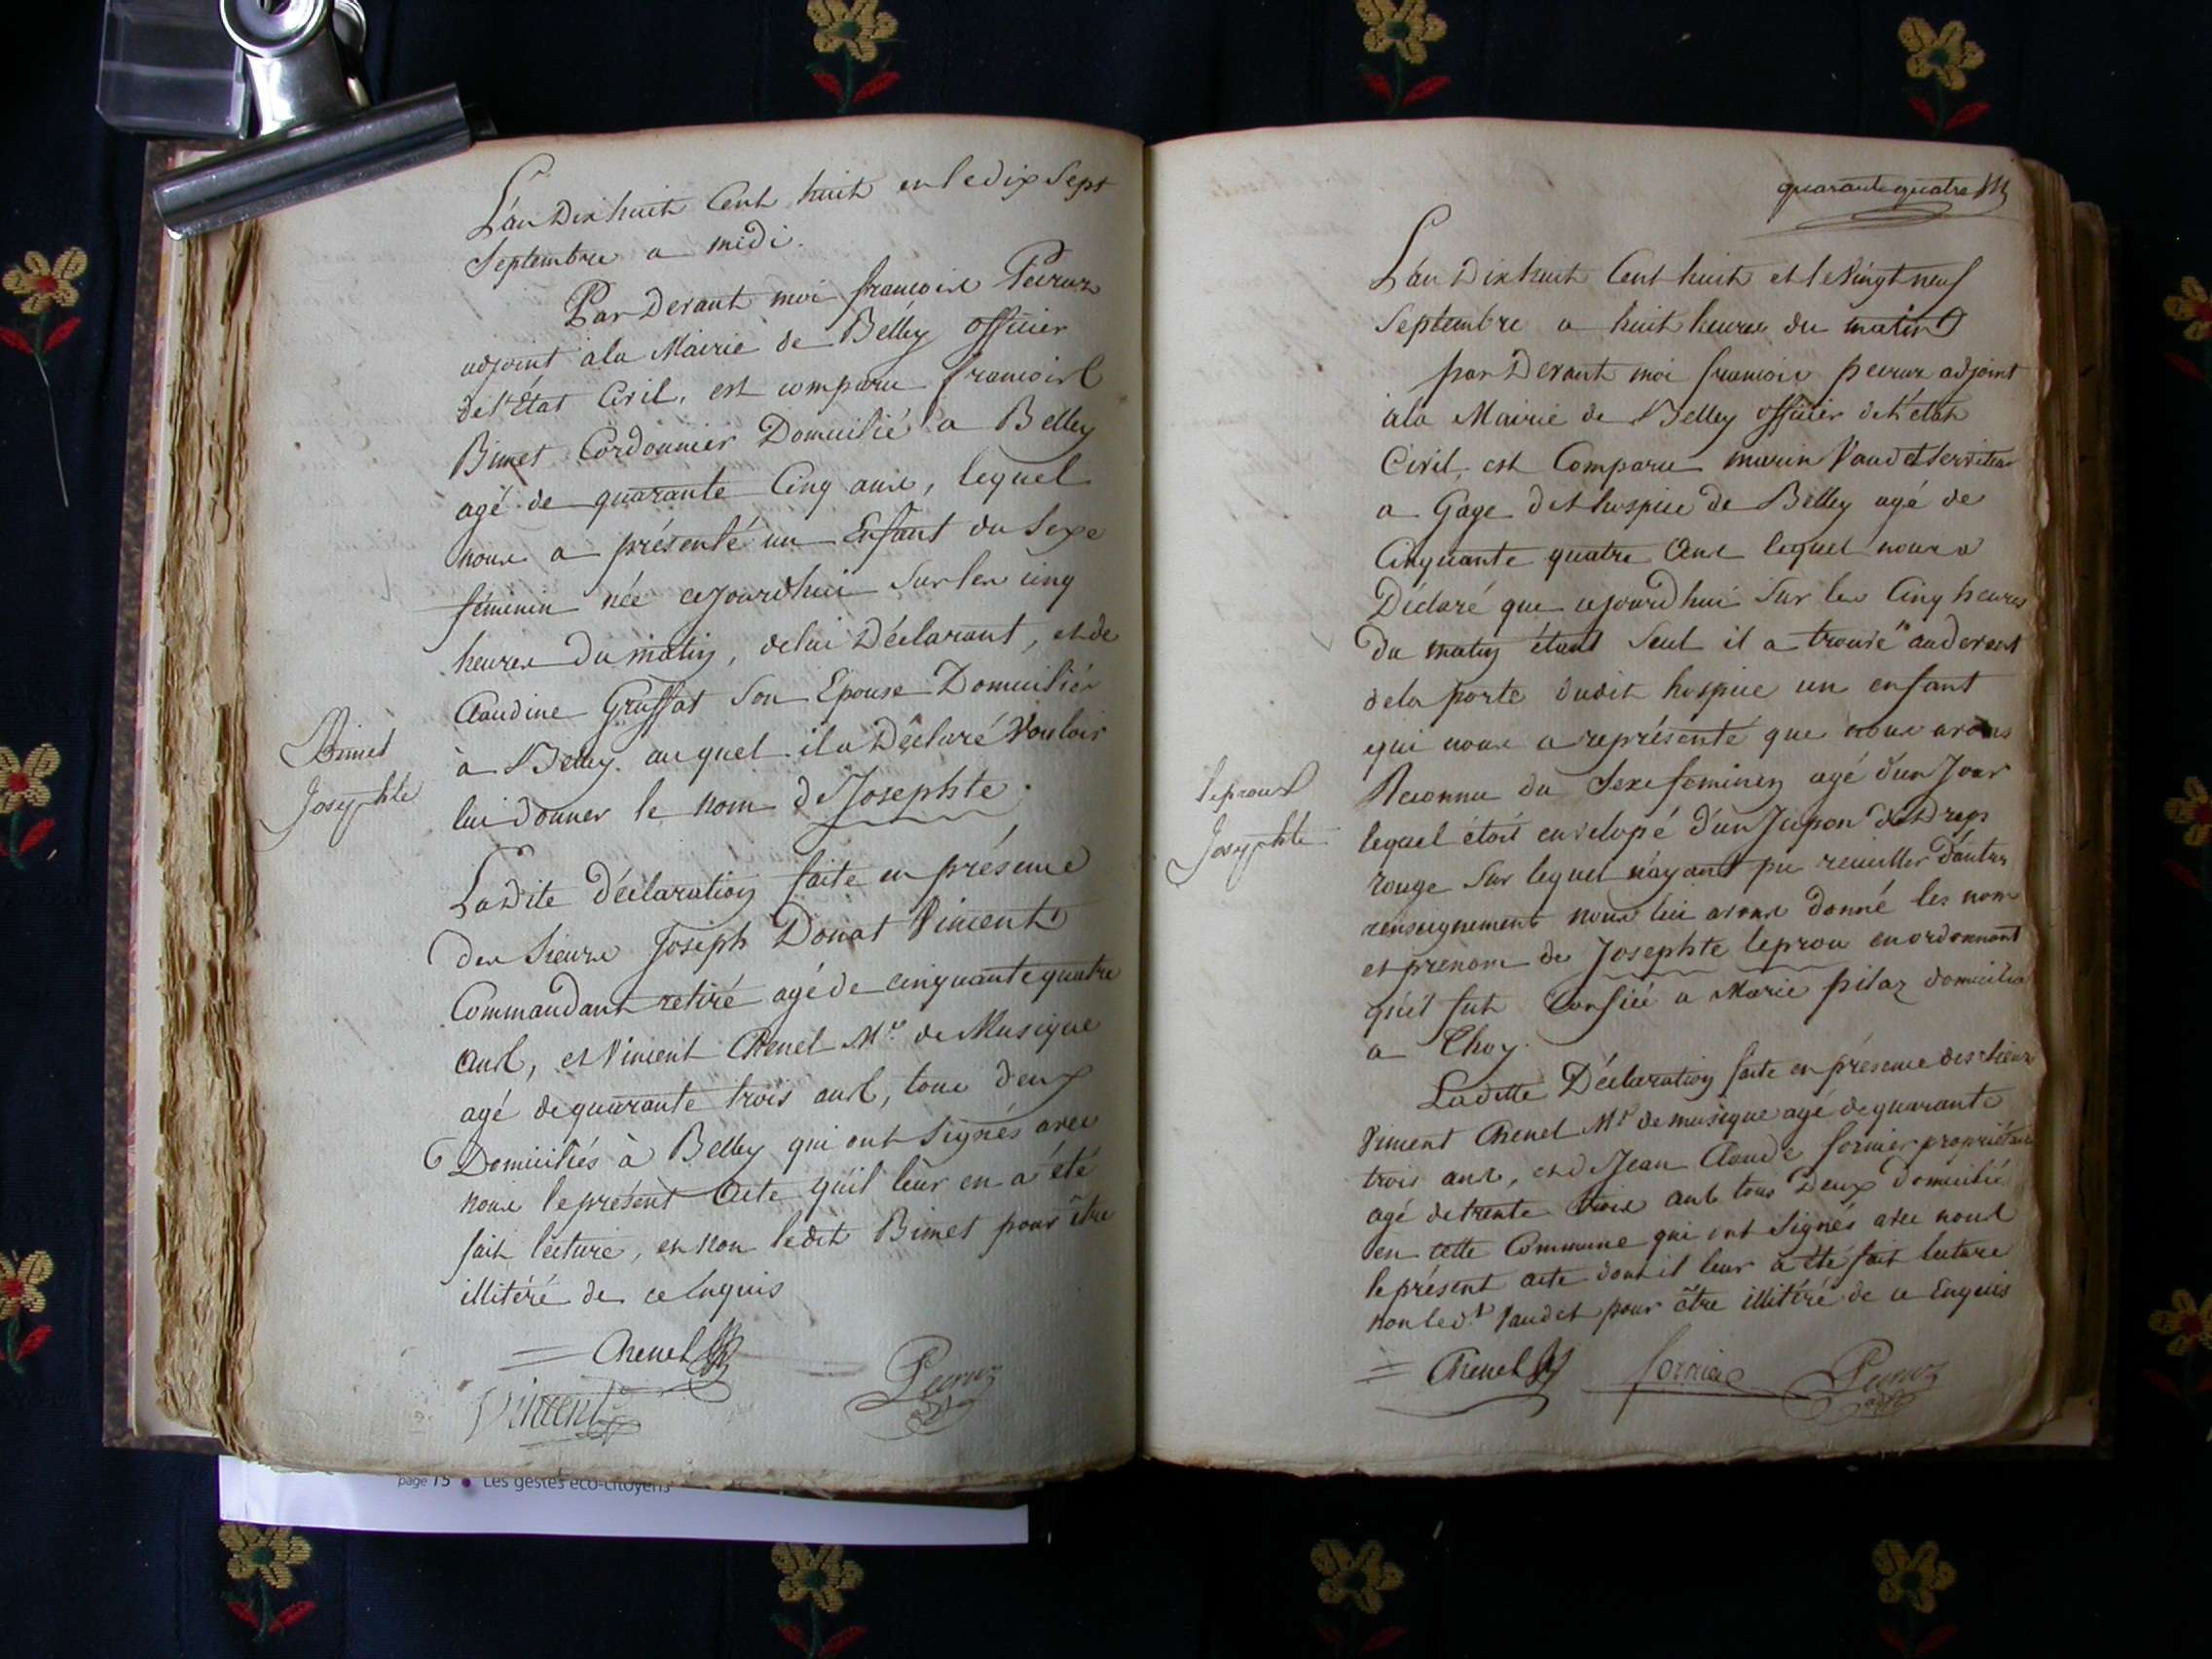 L'an Dix huit Cent huit en le dix Sept
Septembre a midi.
Par Devant moi francoix Peeruz
adjoint a la Mairie de Belley officier
de l'Etat Civil, est comparu francoix
Bimet Cordonnier Domicilié a Belley
agé de quarante Cinq anx, lequel
noux a présenté un Enfant du Sexe
féminin née cejourdhui Sur lex cinq
heurex Du matin, de lui Déclarant, et de
Claudine Gruffat Son Epouse Domiciliés
à Belley auquel il a Déclaré Vouloir
lui donner le nom de Josephte.
Bimet
Josephte
La Dite déclaration faite en présence
dex Sieurx Joseph Donat Vincent
Commandant retiré agé de cinquante quatre
anx, et Vincent Chenel Mre de Musique
agé de quarante trois anx, toux deux
Domiciliés à Belley qui ont Signés avec
noux le présent acte qu'il leur en a été
fait lecture, en non ledit Bimet pour être
illitéré de ce Enquis
Chenel
Vincent
Peeruz
page 15 • Les gestes éco-citoyens
quarante quatre
L'an Dix huit Cent huit et le Vingt neuf
Septembre a huit heurex du matin
par Devant moi francoix peeruz adjoint
a la Mairie de Belley officier de l'état
Civil, est Comparu marin Vaudet Serviteur
a Gage de l'hospice de Belley agé de
Cinquante quatre Anx lequel noux a
Déclaré que cejourdhui Sur lex Cinq heures
Du matin étant Seul il a trouvé au devant
de la porte dudit hospice un enfant
qui noux a représenté que noux avons
Reconnu du Sexe feminin agé d'un Jour
lequel étoit envelopé d'un Jupon de Drap
rouge Sur lequel n'ayant pu recueiller d'autre
renseignement noux lui avonx donné les nom
et prenom de Josephte leprou en ordonnant
qu'il fut Confiée a Marie pilaz domiciliée
a Choy.
leproux
Josephte
Laditte Déclaration faite en présence des Sieurs
Vincent Chenel Mre de musique agé de quarante
trois anx, et de Jean Claude fornier propriétaire
agé de trente troix anx tous Deux domicilié
en cette Commune qui ont Signés avec noux
le présent acte dont il leur a été fait lecture
non led.t Vaudet pour être illitéré de ce Enquis
Chenel
fornier
Peeruz